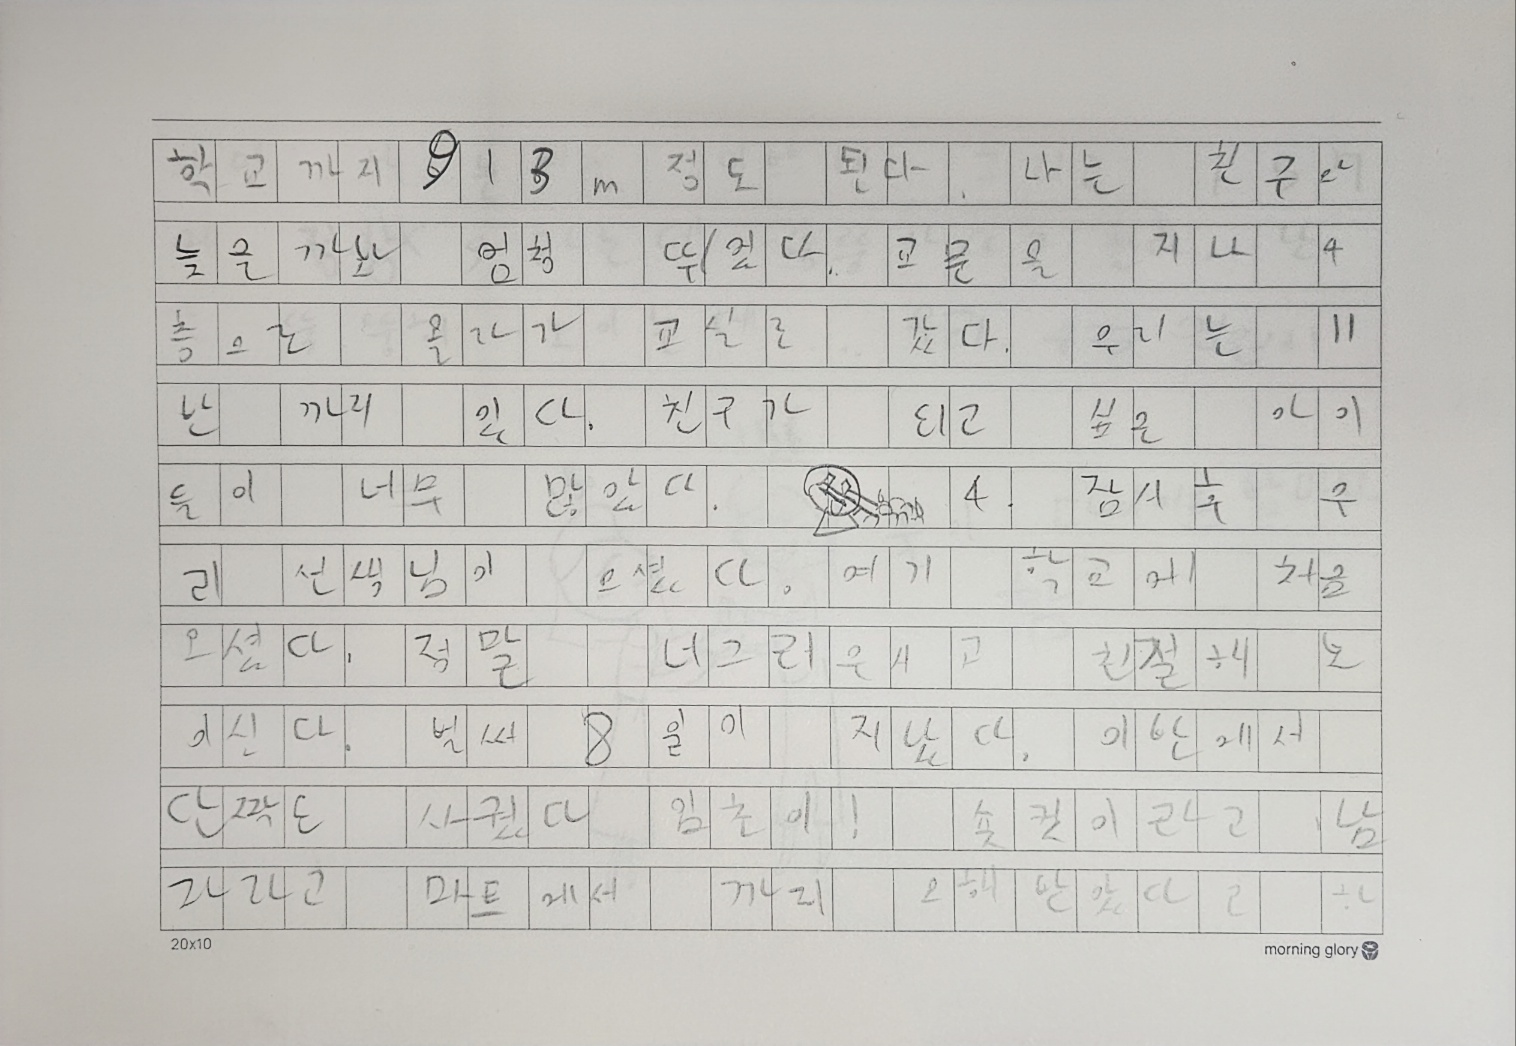 학교까지 913m 정도 된다. 나는 친구와
늦을까봐 엄청 뛰었다. 교문을 지나 4
층으로 올라가 교실로 갔다. 우리는 11
난 까리 있다. 친구가 되고 싶은 아이
들이 너무 많았다. 4. 잠시후 우
리 선생님이 오셨다. 여기 학교에 처음
오셨다. 정말 너그러우시고 친절해 보
이신다. 벌써 8일이 지났다. 이반에서
단짝도 사궜다 임초이! 숏컷이라고 남
그나라고 마트에서 까리 오해받았다고 하
20x10
morning glory